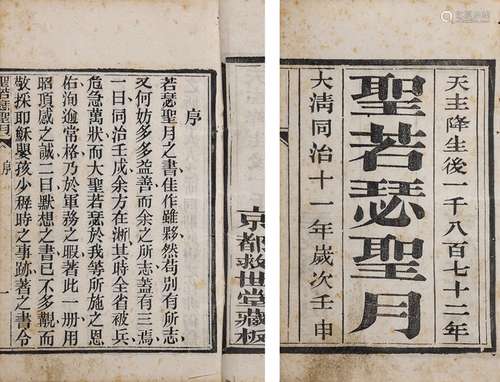 天主降生後一千八百七十二年
聖若瑟聖月
大清同治十一年歲次壬申
京都救世堂藏板
序
若瑟聖月之書佳作雖夥然苟別有所志
又何妨多多益善而余之所志蓋有三焉
一曰同治壬戌余方在浙其時全省被兵
危急萬狀而大聖若瑟於我等所施之恩
佑洵逾常格乃於軍務之暇著此一册用
昭頂感之誠二曰默想之書已不多覯而
敬採耶穌嬰孩少穉時之事跡著之書令
聖若瑟聖月
序
一